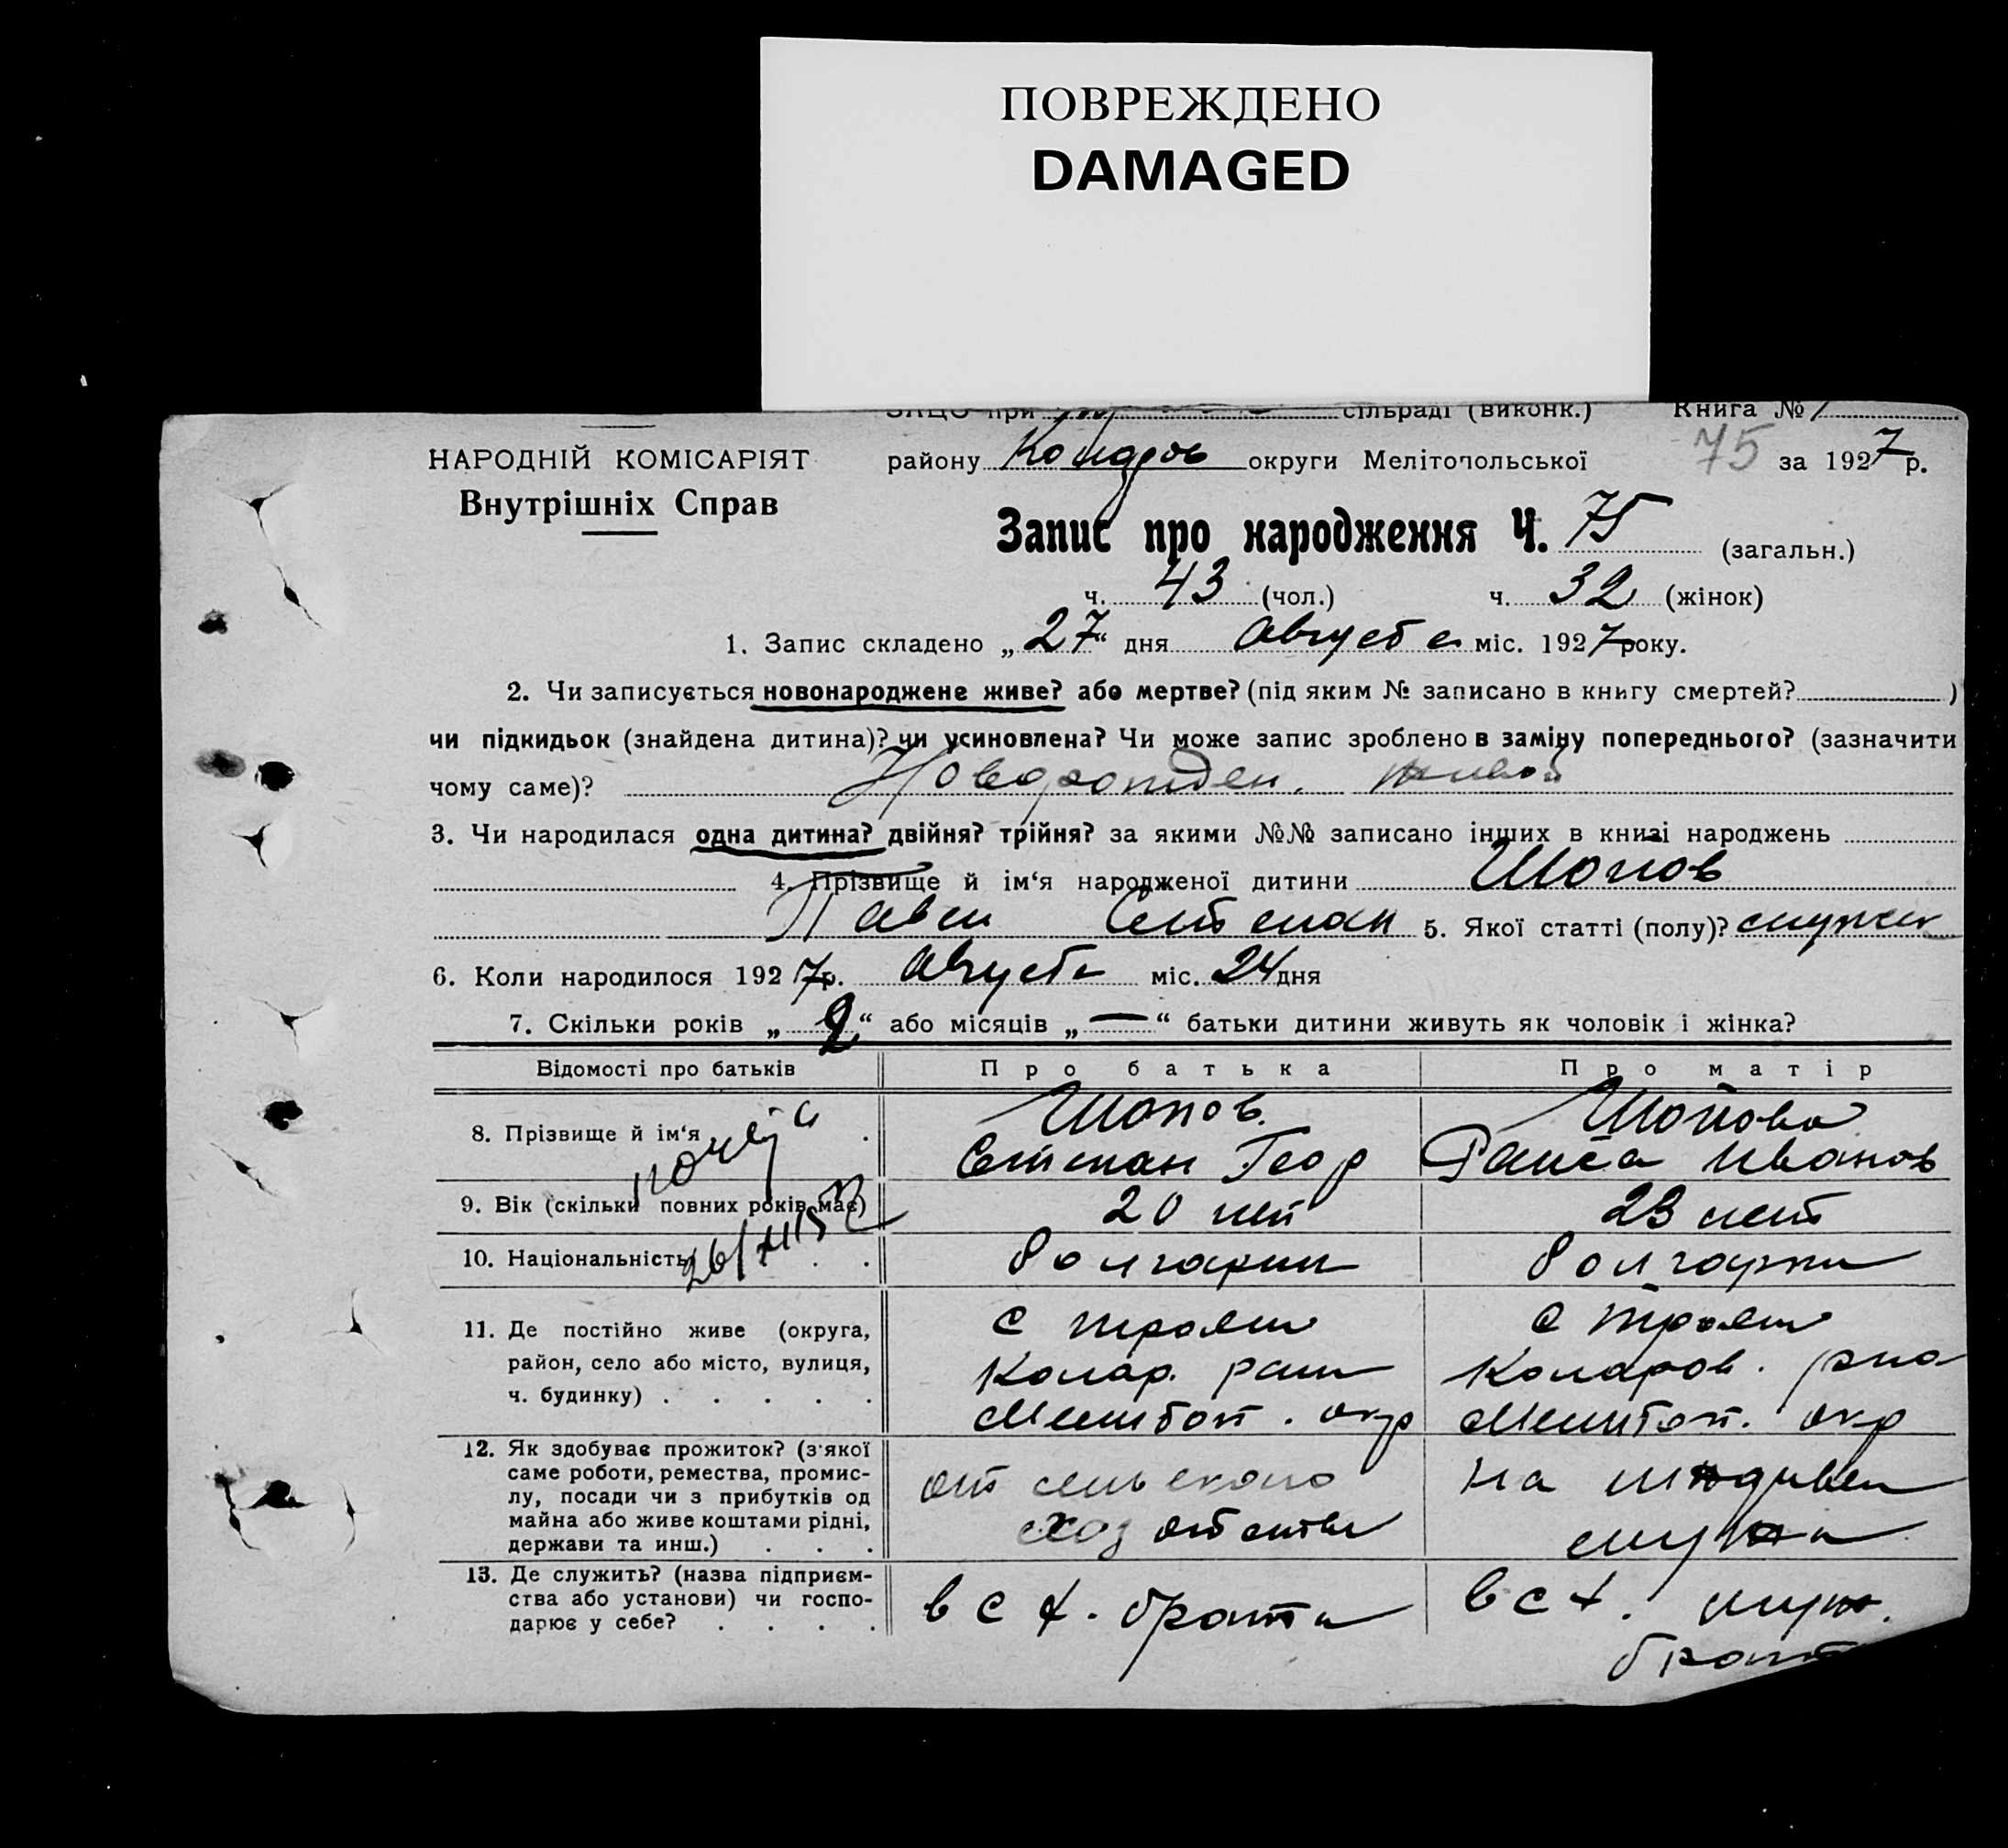 ПОВРЕЖДЕНО
DAMAGED
ЗАЦС при сільраді (виконк.) Книга № 1
НАРОДНІЙ КОМІСАРІЯТ
району округи Мелітопольської 75 за 1927 р.
Внутрішніх Справ
Запис про народження Ч. 75 (загальн.)
ч. 43 (чол.) ч. 32 (жінок)
1. Запис складено „27“ дня Августа міс. 1927 року.
2. Чи записується новонароджене живе? або мертве? (під яким № записано в книгу смертей? )
чи підкидьок (знайдена дитина)? чи усиновлена? Чи може запис зроблено в заміну попереднього? (зазначити
чому саме)? Новорожден. живой
3. Чи народилася одна дитина? двійня? трійня? за якими №№ записано інших в книзі народжень
4. Прізвище й ім‘я народженої дитини Шопов
Павел Степан 5. Якої статті (полу)? мужск
6. Коли народилося 1927 р. Августа міс. 24 дня
7. Скільки років „2“ або місяців „—“ батьки дитини живуть як чоловік і жінка?
Відомості про батьків Про батька Про матір
8. Прізвище й ім‘я . Шопов. Степан Геор Шопова Раиса Иванов
9. Вік (скільки повних років має) 20 лет 23 лет
10. Національність . . болгарин болгарка
11. Де постійно живе (округа, с Троян с Троян
район, село або місто, вулиця, Колар. рай Коларов. рна
ч. будинку) . . . . . Мелитоп. окр Мелитоп. окр
12. Як здобуває прожиток? (з якої
саме роботи, ремества, промис- от сельского на иждивен
лу, посади чи з прибутків од
майна або живе коштами рідні, хоз мужа
держави та инш.) . . .
13. Де служить? (назва підприєм-
ства або установи) чи госпо- в с х. брата в с х. муж.
дарює у себе? . . . . брат